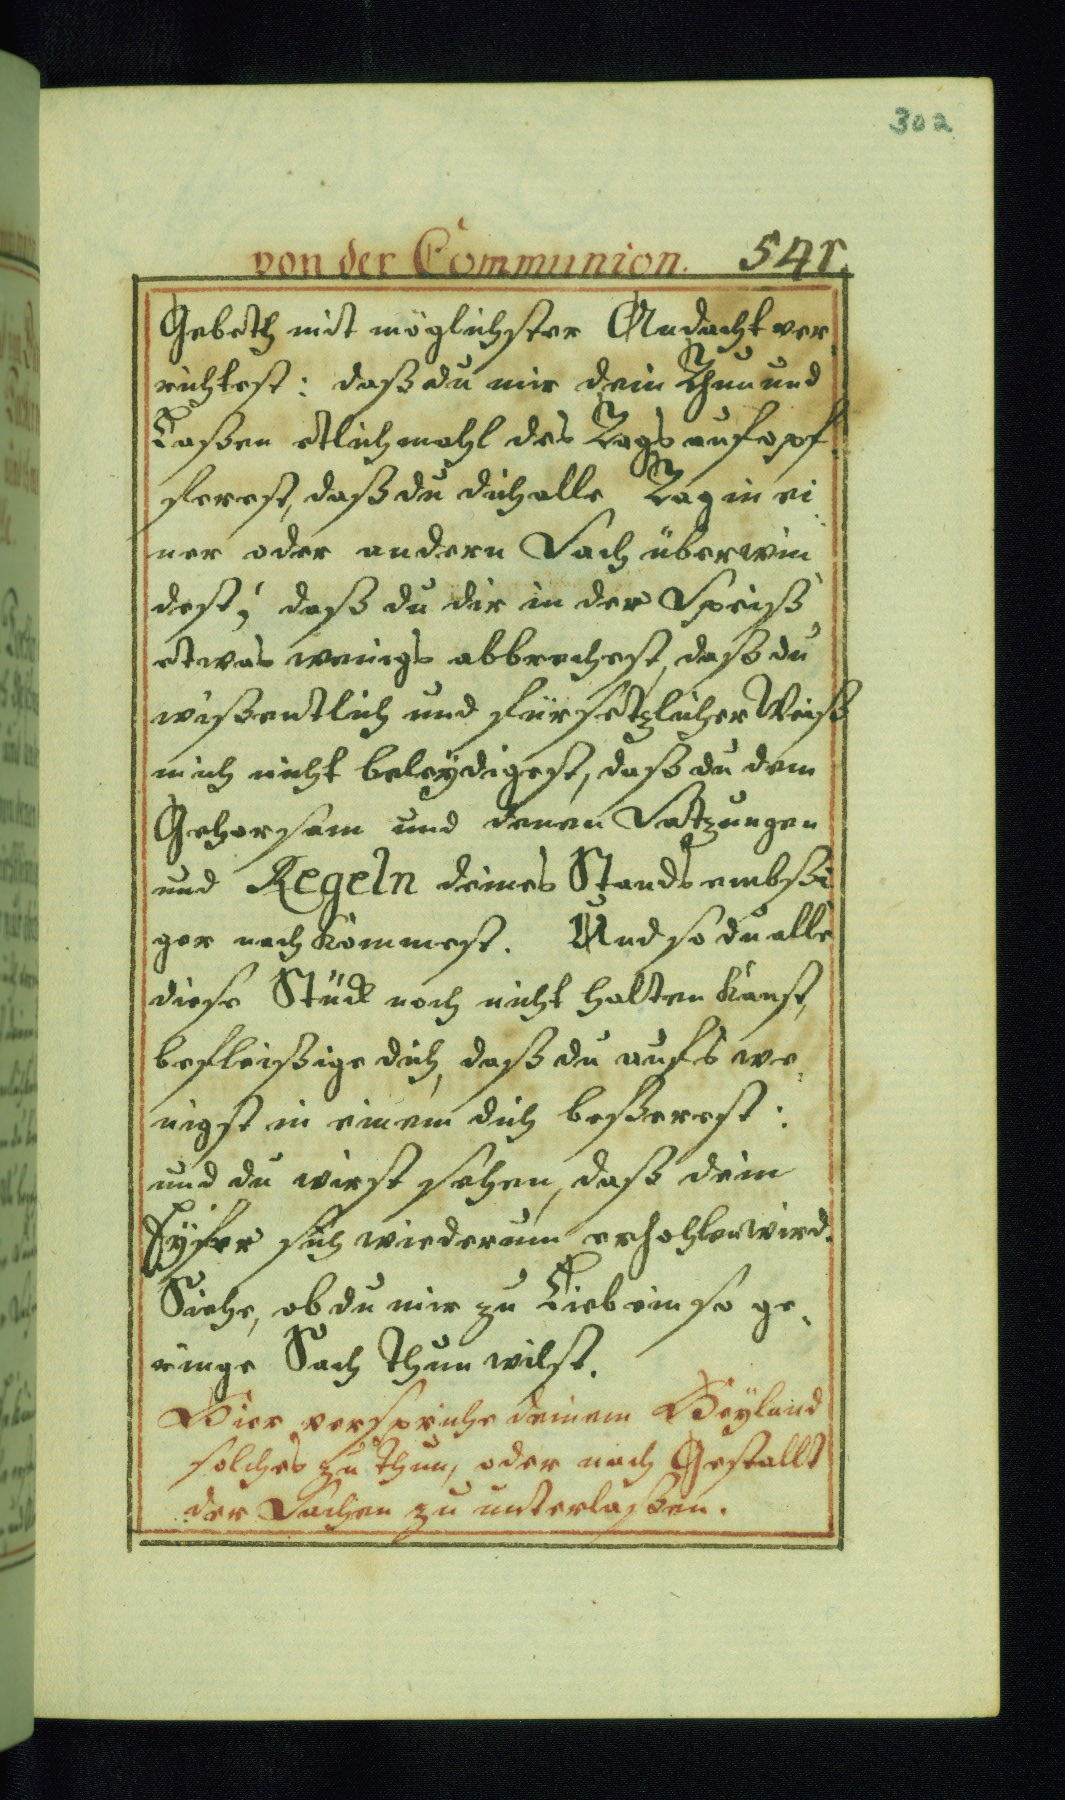 302
von der Communion. 541
Gebeth mit möglichster Andacht ver-
richtest: daß du mir dein Thun und
Laßen etlichmahl des Tags aufopf-
ferest, daß du dich alle Tag in ei-
ner oder andern Sach überwin-
dest, daß du dir in der Speiß
etwas wenigs abbrechest, daß du
wißentlich und fürsetzlicher Weiß
mich nicht beleydigest, daß du dem
Gehorsam und denen Satzungen
und Regeln deines Stands embsi-
ger nach kommest. Und so du alle
diese Stück noch nicht halten kanst,
befleißige dich, daß du aufs we-
nigst in einem dich beßerest:
und du wirst sehen, daß dein
Eyfer sich wiederum erhohlen wird.
Siehe, ob du mir zu Lieb ein so ge-
ringe Sach thun wilst.
Hier verspriche deinem Heyland
solches zu thun, oder nach Gestallt
der Sachen zu unterlaßen.